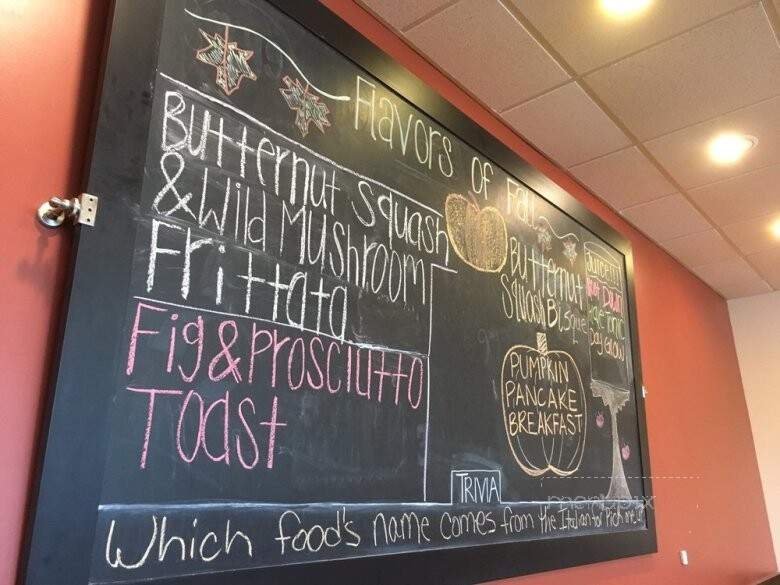 Flavors of Fall
Butternut Squash
& Wild Mushroom
Frittata
Fig & Prosciutto
Toast
Butternut
Squash Bisque
PUMPKIN
PANCAKE
BREAKFAST
Day Glow
TRIVIA
Which food's name comes from the Italian for
menupix